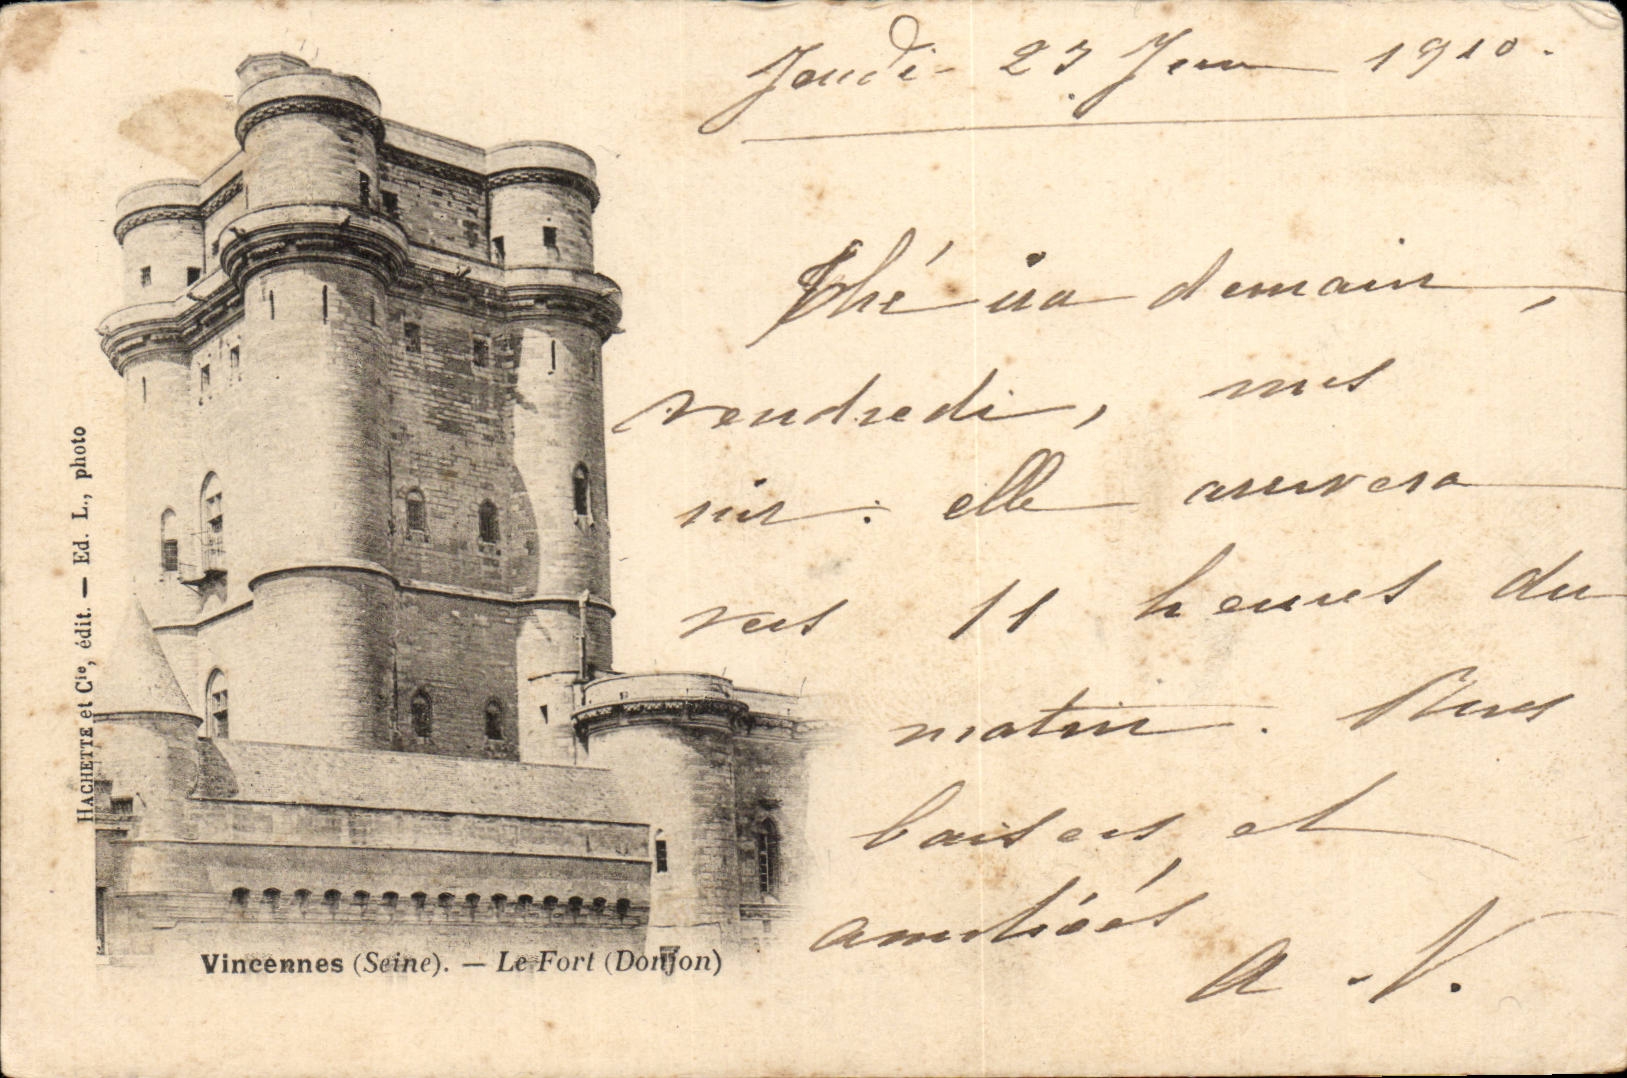 Jeudi 23 Juin 1910.
Thé ira demain,
vendredi, vous
voir : elle arrivera
vers 11 heures du
matin. Bons
baisers et
amitiés
A. V.
HACHETTE et Cie, édit. — Ed. L., photo
Vincennes (Seine). — Le Fort (Donjon)